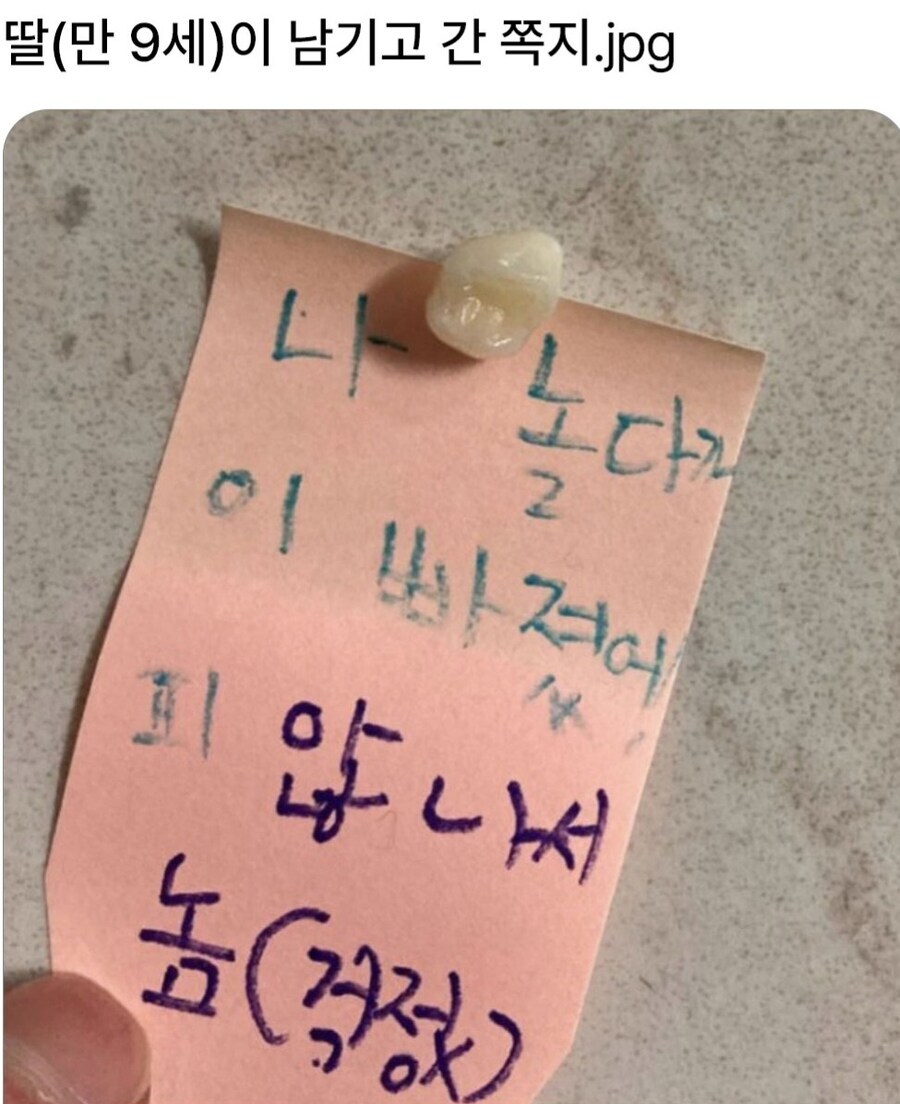 딸(만 9세)이 남기고 간 쪽지.jpg
나 놀다가
이 빠졌어
피 않나서
놈(걱정X)